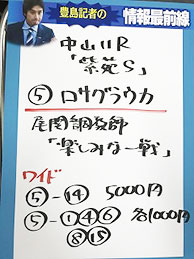 豊島記者の
情報最前線
中山11R
「紫苑S」
⑤ロサグラウカ
尾関調教師
「楽しみな一戦」
ワイド
⑤-⑭ 5000円
⑤-①④⑥ 各1000円
⑧⑮